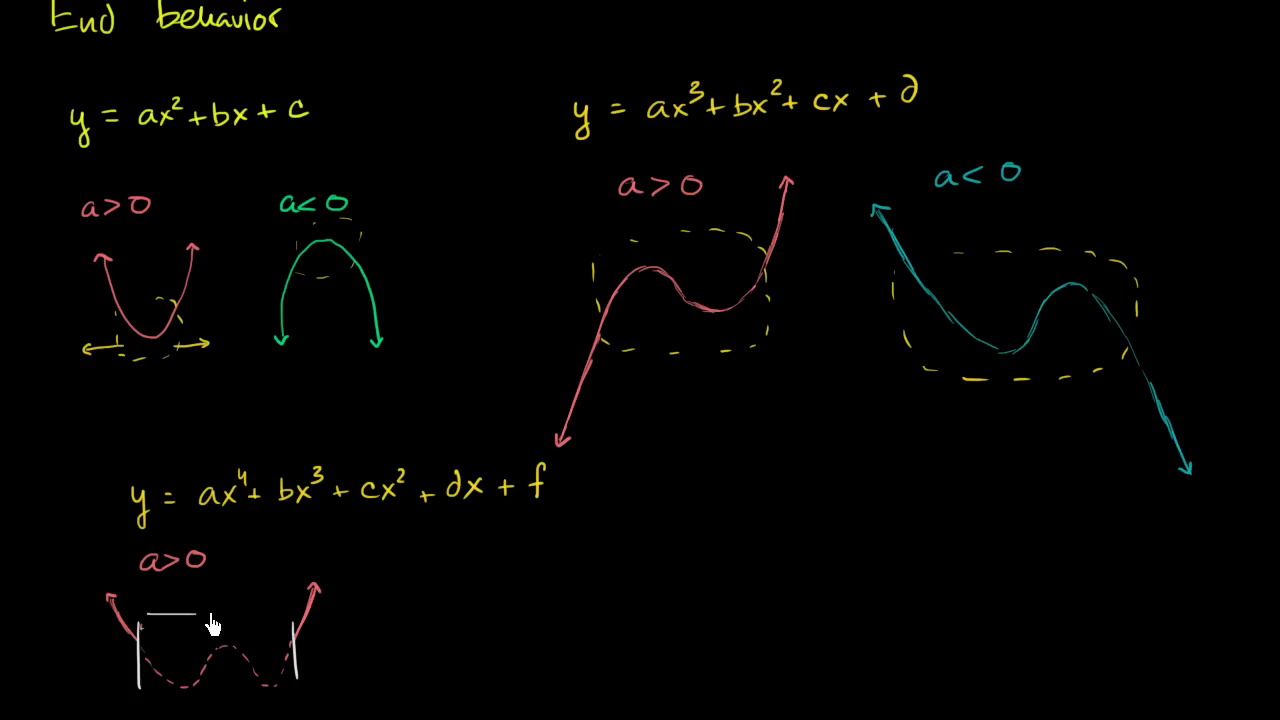 End behavior
y = ax² + bx + c
a > 0
a < 0
y = ax³ + bx² + cx + d
a > 0
a < 0
y = ax⁴ + bx³ + cx² + dx + f
a > 0